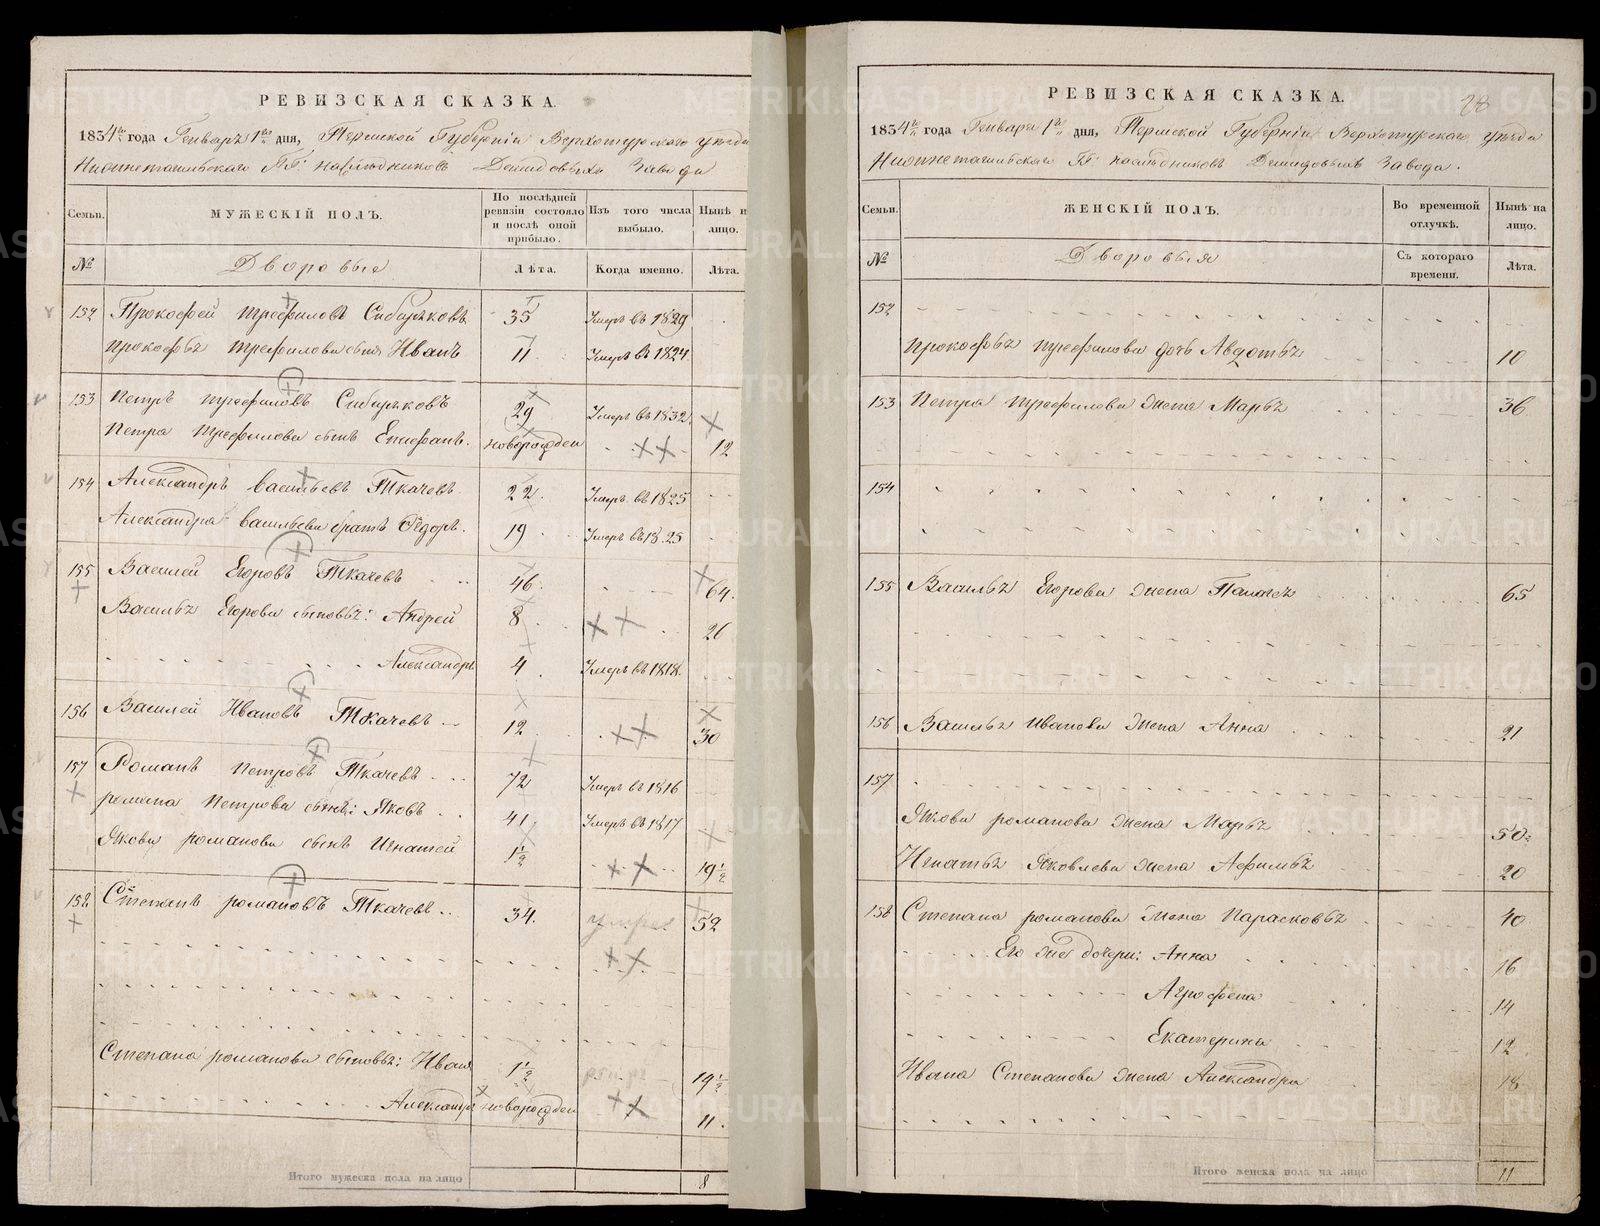 РЕВИЗСКАЯ СКАЗКА.
1834го года Генваря 1го дня, Пермской Губернiи Верхотурского уезда
Нижнетагильского ГГ: наследниковъ Демидовыхъ Завода
Семьи. МУЖЕСКIЙ ПОЛЪ. По послѣдней ревизiи состояло и послѣ оной прибыло. Изъ того числа выбыло. Нынѣ на лицо.
№ Дворовые Лѣта. Когда именно. Лѣта.
152 Прокофей Трефиловъ Сибиряковъ 35 Умеръ въ 1829
Прокофья Трефилова сынъ Иванъ 11 Умеръ въ 1824
153 Петръ Трефиловъ Сибиряковъ 29 Умеръ въ 1832
Петра Трефилова сынъ Епифанъ. новорожден 12
154 Александръ Васильевъ Ткачевъ 22 Умеръ въ 1825
Александра Васильева братъ Федоръ. 19 Умеръ въ 1825
155 Василей Егоровъ Ткачевъ 46 64
Василья Егорова сыновья: Андрей 8 26
Александръ 4 Умеръ въ 1818
156 Василей Ивановъ Ткачевъ 12 30
157 Романъ Петровъ Ткачевъ 72 Умеръ въ 1816
романа Петрова сынъ: Яковъ 41 Умеръ въ 1817
Якова романова сынъ Игнатей 1 1/2 19 1/2
158 Степанъ романовъ Ткачевъ 34 умрел 52
Степана романова сыновья: Иванъ 1 1/2 19 1/2
Александръ новорожден 11
Итого мужеска пола на лицо 8
РЕВИЗСКАЯ СКАЗКА.
28
1834го года Генваря 1го дня, Пермской Губернiи Верхотурского уезда
Нижнетагильского ГГ: наследниковъ Демидовыхъ Завода.
Семьи. ЖЕНСКIЙ ПОЛЪ. Во временной отлучкѣ. Нынѣ на лицо.
№ Дворовыя Съ котораго времени. Лѣта.
152
Прокофья Трефилова дочь Авдотья 10
153 Петра Трефилова жена Марья 36
154
155 Василья Егорова жена Палагея 65
156 Василья Иванова жена Анна 21
157
Якова романова жена Марья 50
Игнатья Яковлева жена Афимья 20
158 Степана романова жена Парасковья 40
Его же дочери: Анна 16
Агрофена 14
Екатерина 12
Ивана Степанова жена Александра 18
Итого женска пола на лицо 11
METRIKI.GASO-URAL.RU